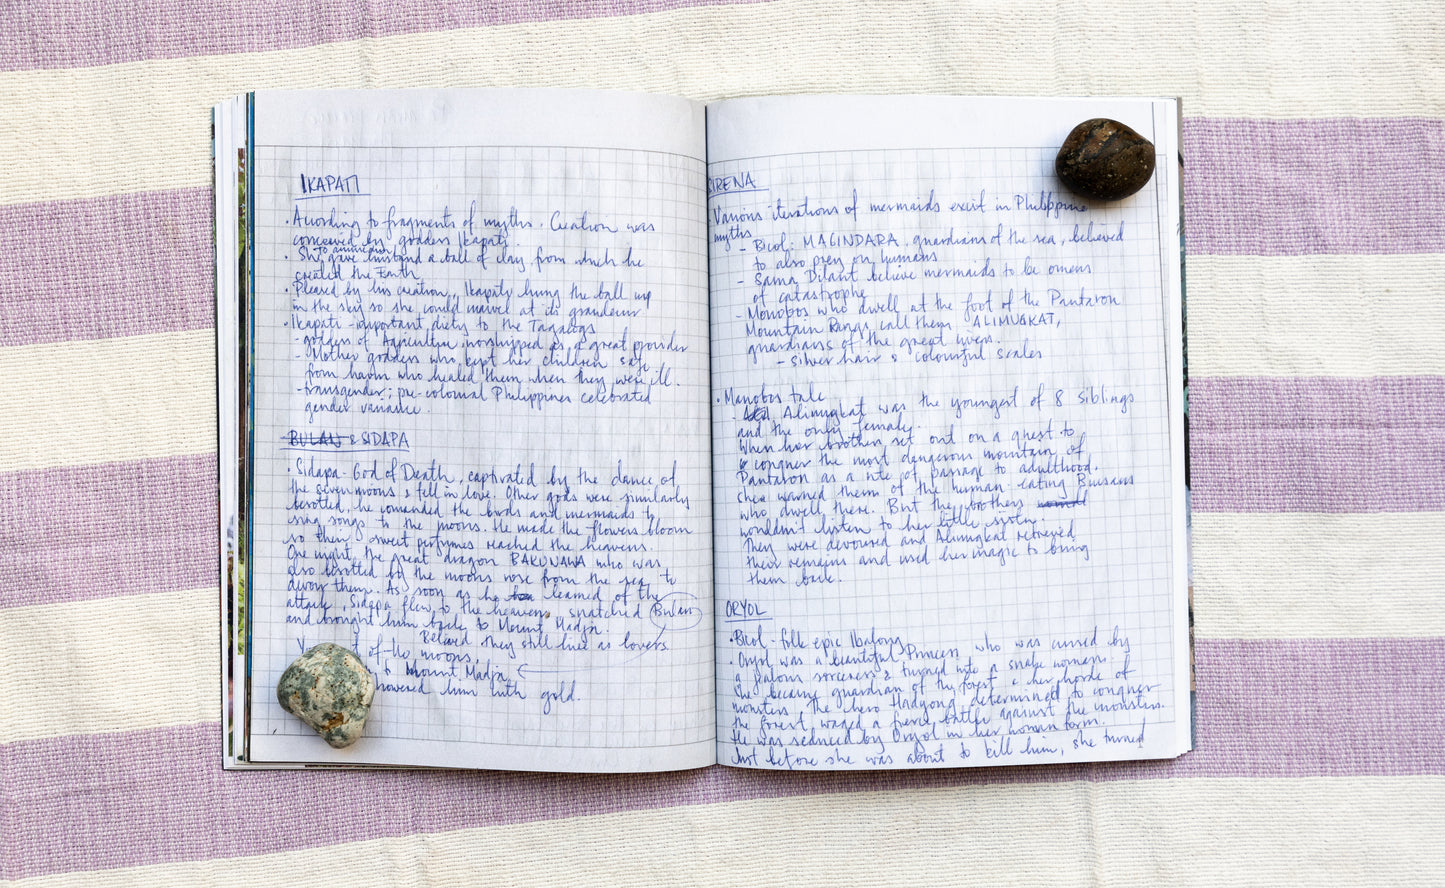 IKAPATI
. According to fragments of myths. Creation was
conceived by goddess Ikapati.
to amininasy
. She gave husband a ball of clay from which he
created the Earth
. Pleased by his creation, Ikapaty hung the ball up
in the sky so she could marvel at its grandeur
. Ikapati - important diety to the Tagalogs
- goddess of Agriculture, worshipped as a great provider
- Mother goddess who kept her children safe
from harm who healed them when they were ill.
- transgender; pre-colonial Philippines celebrated
gender variance.
BULAN & SIDAPA
. Sidapa - God of Death, captivated by the dance of
the seven moons & fell in love. Other gods were similarly
besotted, he comanded the birds and mermaids to
sing songs to the moons. He made the flowers bloom
so their sweet perfumes reached the heavens.
One night, the great dragon BAKUNAWA who was
also besotted by the moons rose from the sea to
devour them. As soon as he learned of the
attack, Sidapa flew to the heavens, snatched Bulan
and brought him back to Mount Madja.
Believed they still live as lovers.
of the moons,
to Mount Madja
showered him with gold.
SIRENA
Various iterations of mermaids exist in Philippine
myths
- Bicol: MAGINDARA, guardians of the sea, believed
to also prey on humans
- Sama Dilaut believe mermaids to be omens
of catastrophe
- Monobos who dwell at the foot of the Pantaron
Mountain Range call them ALIMUGKAT,
guardians of the great rivers.
- silver hair & colourful scales
. Manobos tale
- Alimugkat was the youngest of 8 siblings
and the only female.
When her brothers set out on a quest to
conquer the most dangerous mountain of
Pantaron as a rite of passage to adulthood.
she warned them of the human-eating Busaws
who dwell there. But the brothers
wouldn't listen to her little sister.
They were devoured and Alimugkat retrieved
their remains and used her magic to bring
them back.
ORYOL
. Bicol - folk epic Ibalong
. Oryol was a beautiful Princess who was cursed by
a jealous sorceress & turned into a snake woman.
She became guardian of the forest & her horde of
monsters. The hero Handyong determined to conquer
the forest, waged a fierce battle against the monsters.
He was seduced by Oryol in her human form.
Just before she was about to kill him, she turned